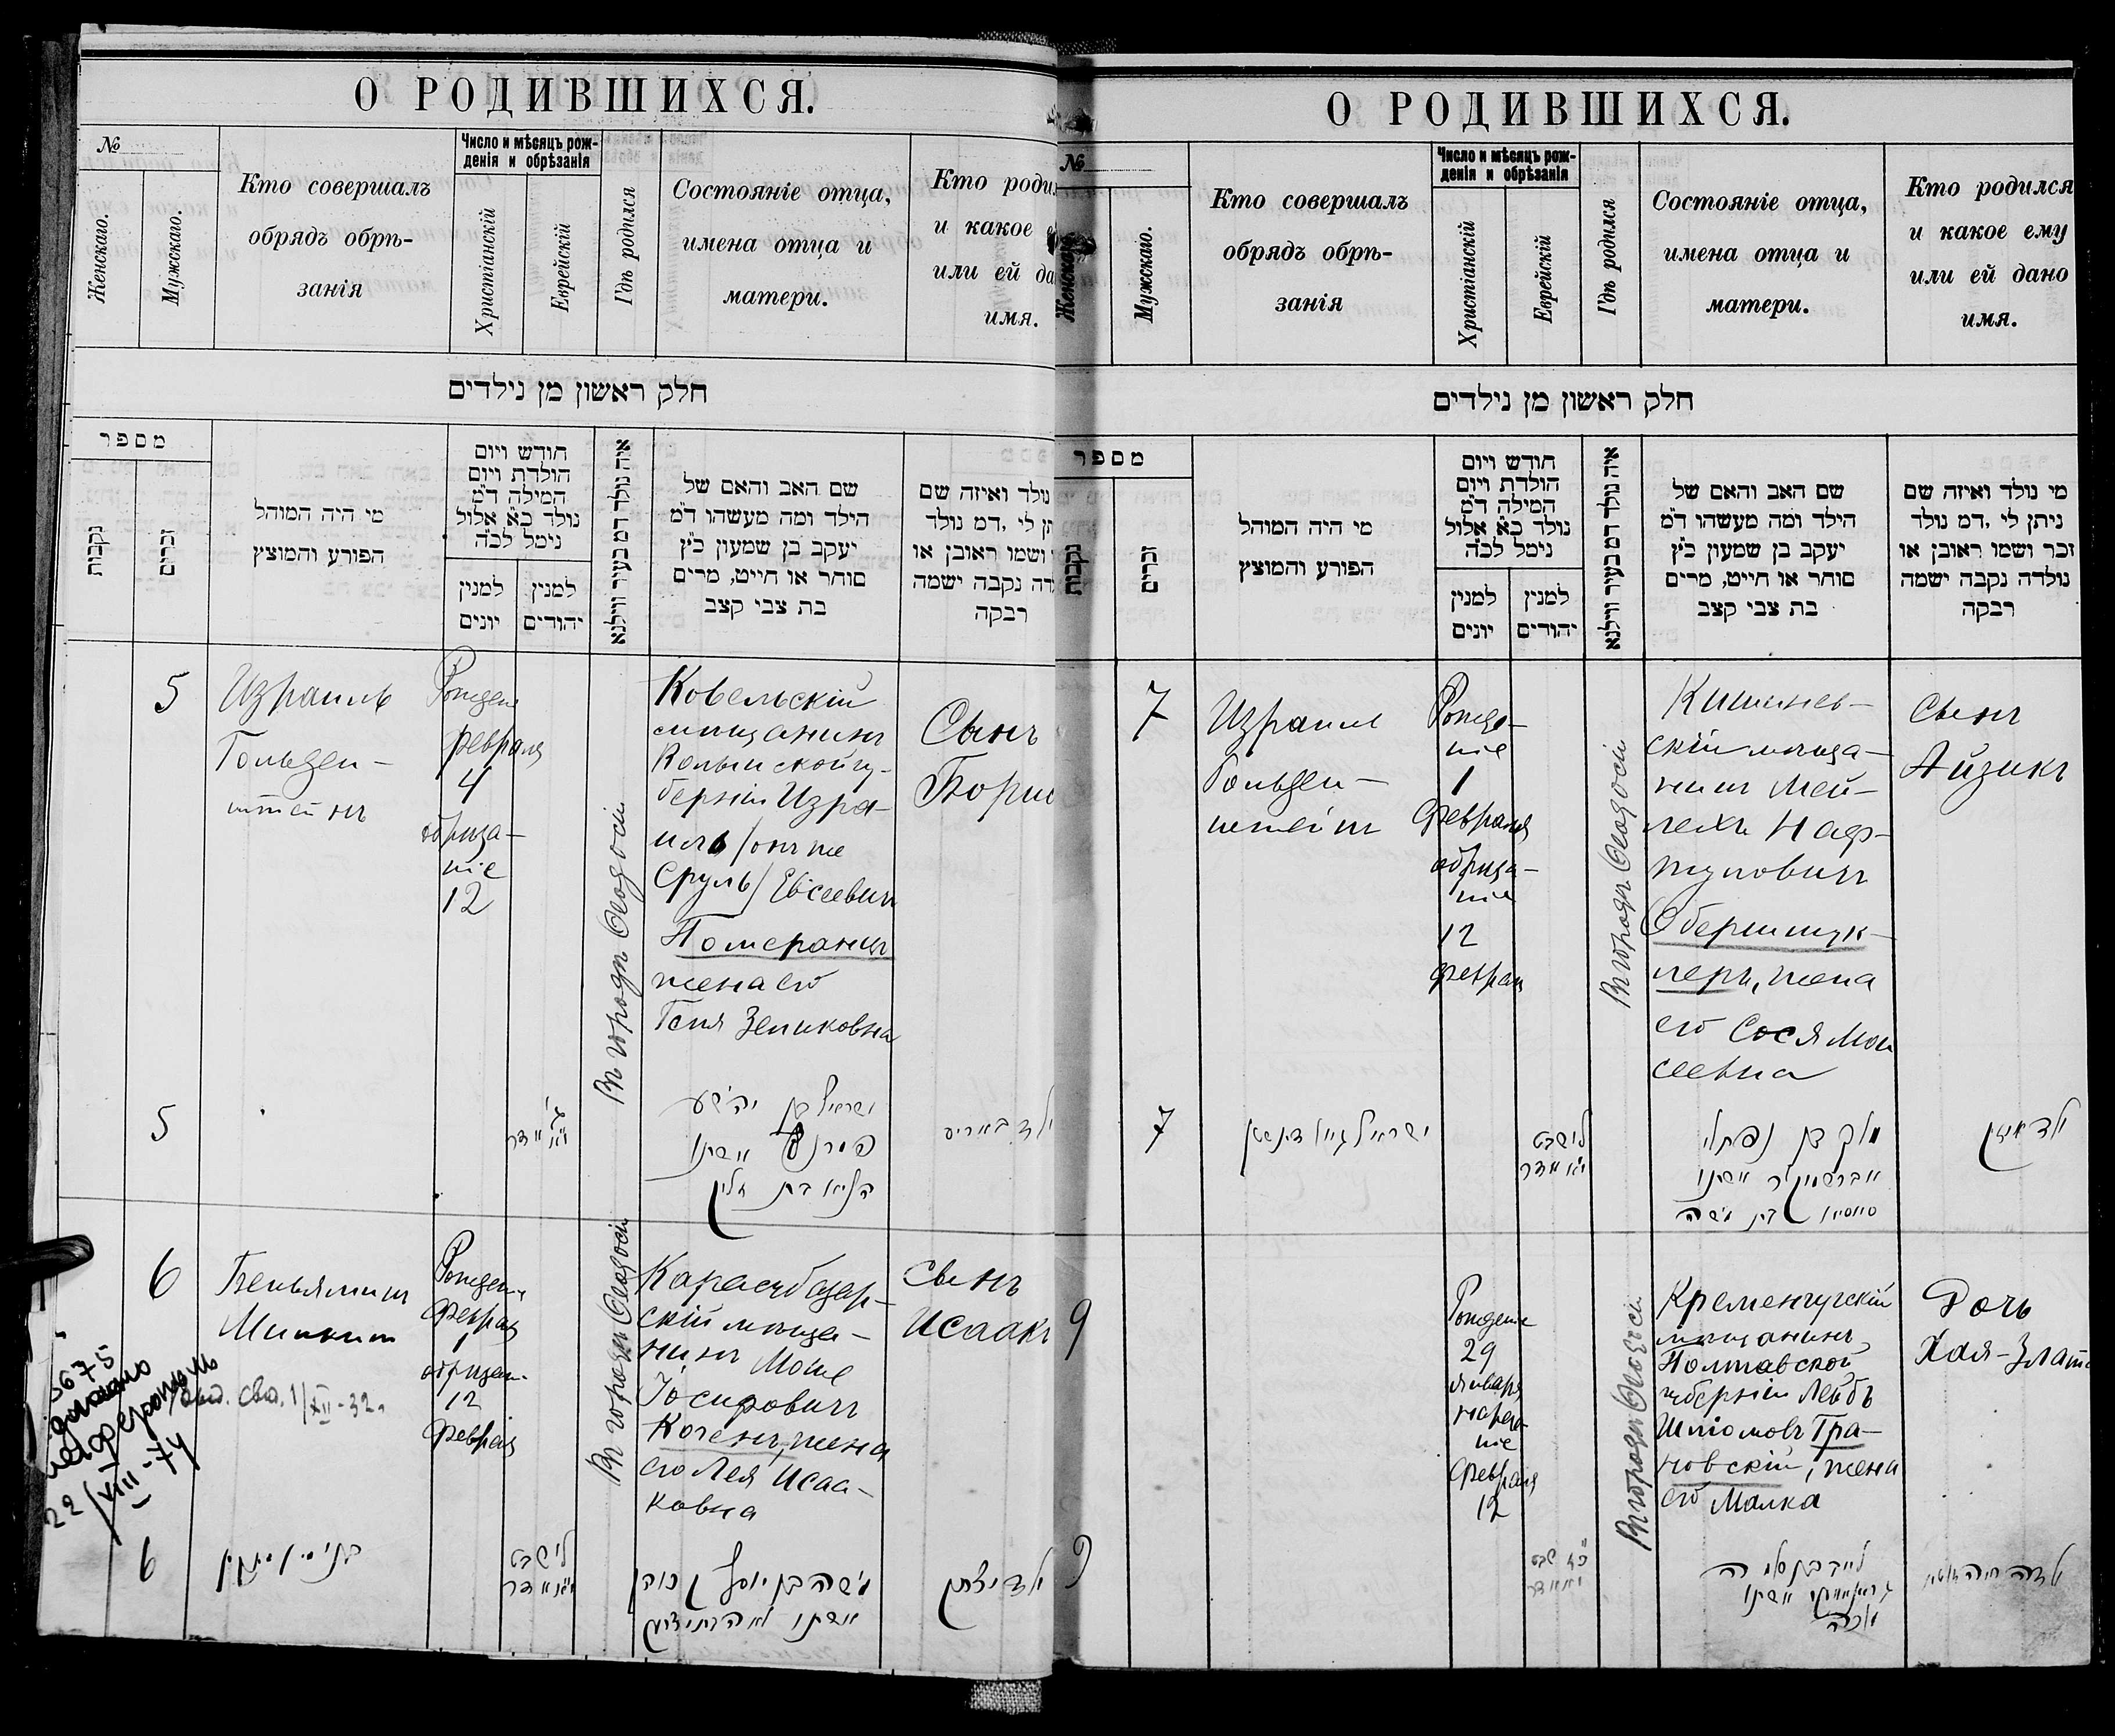 О РОДИВШИХСЯ.
№
Женскаго.
Мужскаго.
Кто совершалъ
обрядъ обрѣ-
занія
Число и мѣсяцъ рож-
денія и обрѣзанія
Христіанскій
Еврейскій
Гдѣ родился
Состояніе отца,
имена отца и
матери.
Кто роди
и какое
или ей да
имя.
חלק ראשון מן נילדים
מספר
נקבות
זכרים
מי היה המוהל
הפורע והמוצץ
חודש ויום
הולדת ויום
המילה ד״מ
נולד כ״א אלול
נימל לכ״ה
למנין
יונים
למנין
יהודים
איה נולד דמ בעיר ווילנא
שם האב והאם של
הילד ומה מעשהו ד״מ
יעקב בן שמעון כ״ץ
סוחר או חייט, מרים
בת צבי קצב
נולד ואיזה שם
תן לי ,דמ נולד
ושמו ראובן או
דה נקבה ישמה
רבקה
5
Израиль
Гольден-
штейнъ
Рожден
февраля
4
обрѣза-
ніе
12
Въ городѣ Ѳеодосіи
Ковельскій
мѣщанинъ
Волынской гу-
берніи Изра-
иль /онъ же
Сруль/ Евсеевичъ
Померанцъ
жена его
Геня Зеликовна
Сынъ
Борис
5
ישראל בן
אשתו
ילד
6
Беньяминъ
Минкинъ
Рожден
Феврал
1
обрѣзан
12
Февраля
Въ городѣ Ѳеодосіи
Карасубазар-
скій мѣща-
нинъ Моше
Іосифовичъ
Когенъ, жена
его Лея Исаа-
ковна
Сынъ
Исаакъ
3675
22/VIII-74
1/XII-32г.
6
בנימין מינקין
לו שבט
משה בן יוסף כהן
אשתו לאה בת יצחק
ילד יצחק
О РОДИВШИХСЯ.
№
Женскаго
Мужскаго.
Кто совершалъ
обрядъ обрѣ-
занія
Число и мѣсяцъ рож-
денія и обрѣзанія
Христіанскій
Еврейскій
Гдѣ родился
Состояніе отца,
имена отца и
матери.
Кто родился
и какое ему
или ей дано
имя.
חלק ראשון מן נילדים
מספר
נקבות
זכרים
מי היה המוהל
הפורע והמוצץ
חודש ויום
הולדת ויום
המילה ד״מ
נולד כ״א אלול
נימל לכ״ה
למנין
יונים
למנין
יהודים
איה נולד דמ בעיר ווילנא
שם האב והאם של
הילד ומה מעשהו ד״מ
יעקב בן שמעון כ״ץ
סוחר או חייט, מרים
בת צבי קצב
מי נולד ואיזה שם
ניתן לי ,דמ נולד
זכר ושמו ראובן או
נולדה נקבה ישמה
רבקה
7
Израил
Гольден-
штейнъ
Рожде-
ніе
1
Февраля
обрѣза-
ніе
12
феврал
Въ городѣ Ѳеодосіи
Кишинев-
скій мѣща-
нинъ Мей-
лехъ Наф-
туловичъ
Обершмук-
леръ, жена
его Сося Мои
сеевна
Сынъ
Айзикъ
7
ישראל גאלדינשטיין
לו שבט
מלך בן נפתלי
אשתו
בת משה
ילד אייזיק
9
Рожден
29
Января
нарече-
ніе
Февраля
12
Въ городѣ Ѳеодосіи
Кременчугскій
мѣщанинъ
Полтавской
губерніи Лейбъ
Шліомовъ Гра-
новскій, жена
его Малка
Дочь
Хая-Злата
9
לייב בן שלמה
אשתו
מלכה
ילדה חיה זלאטע